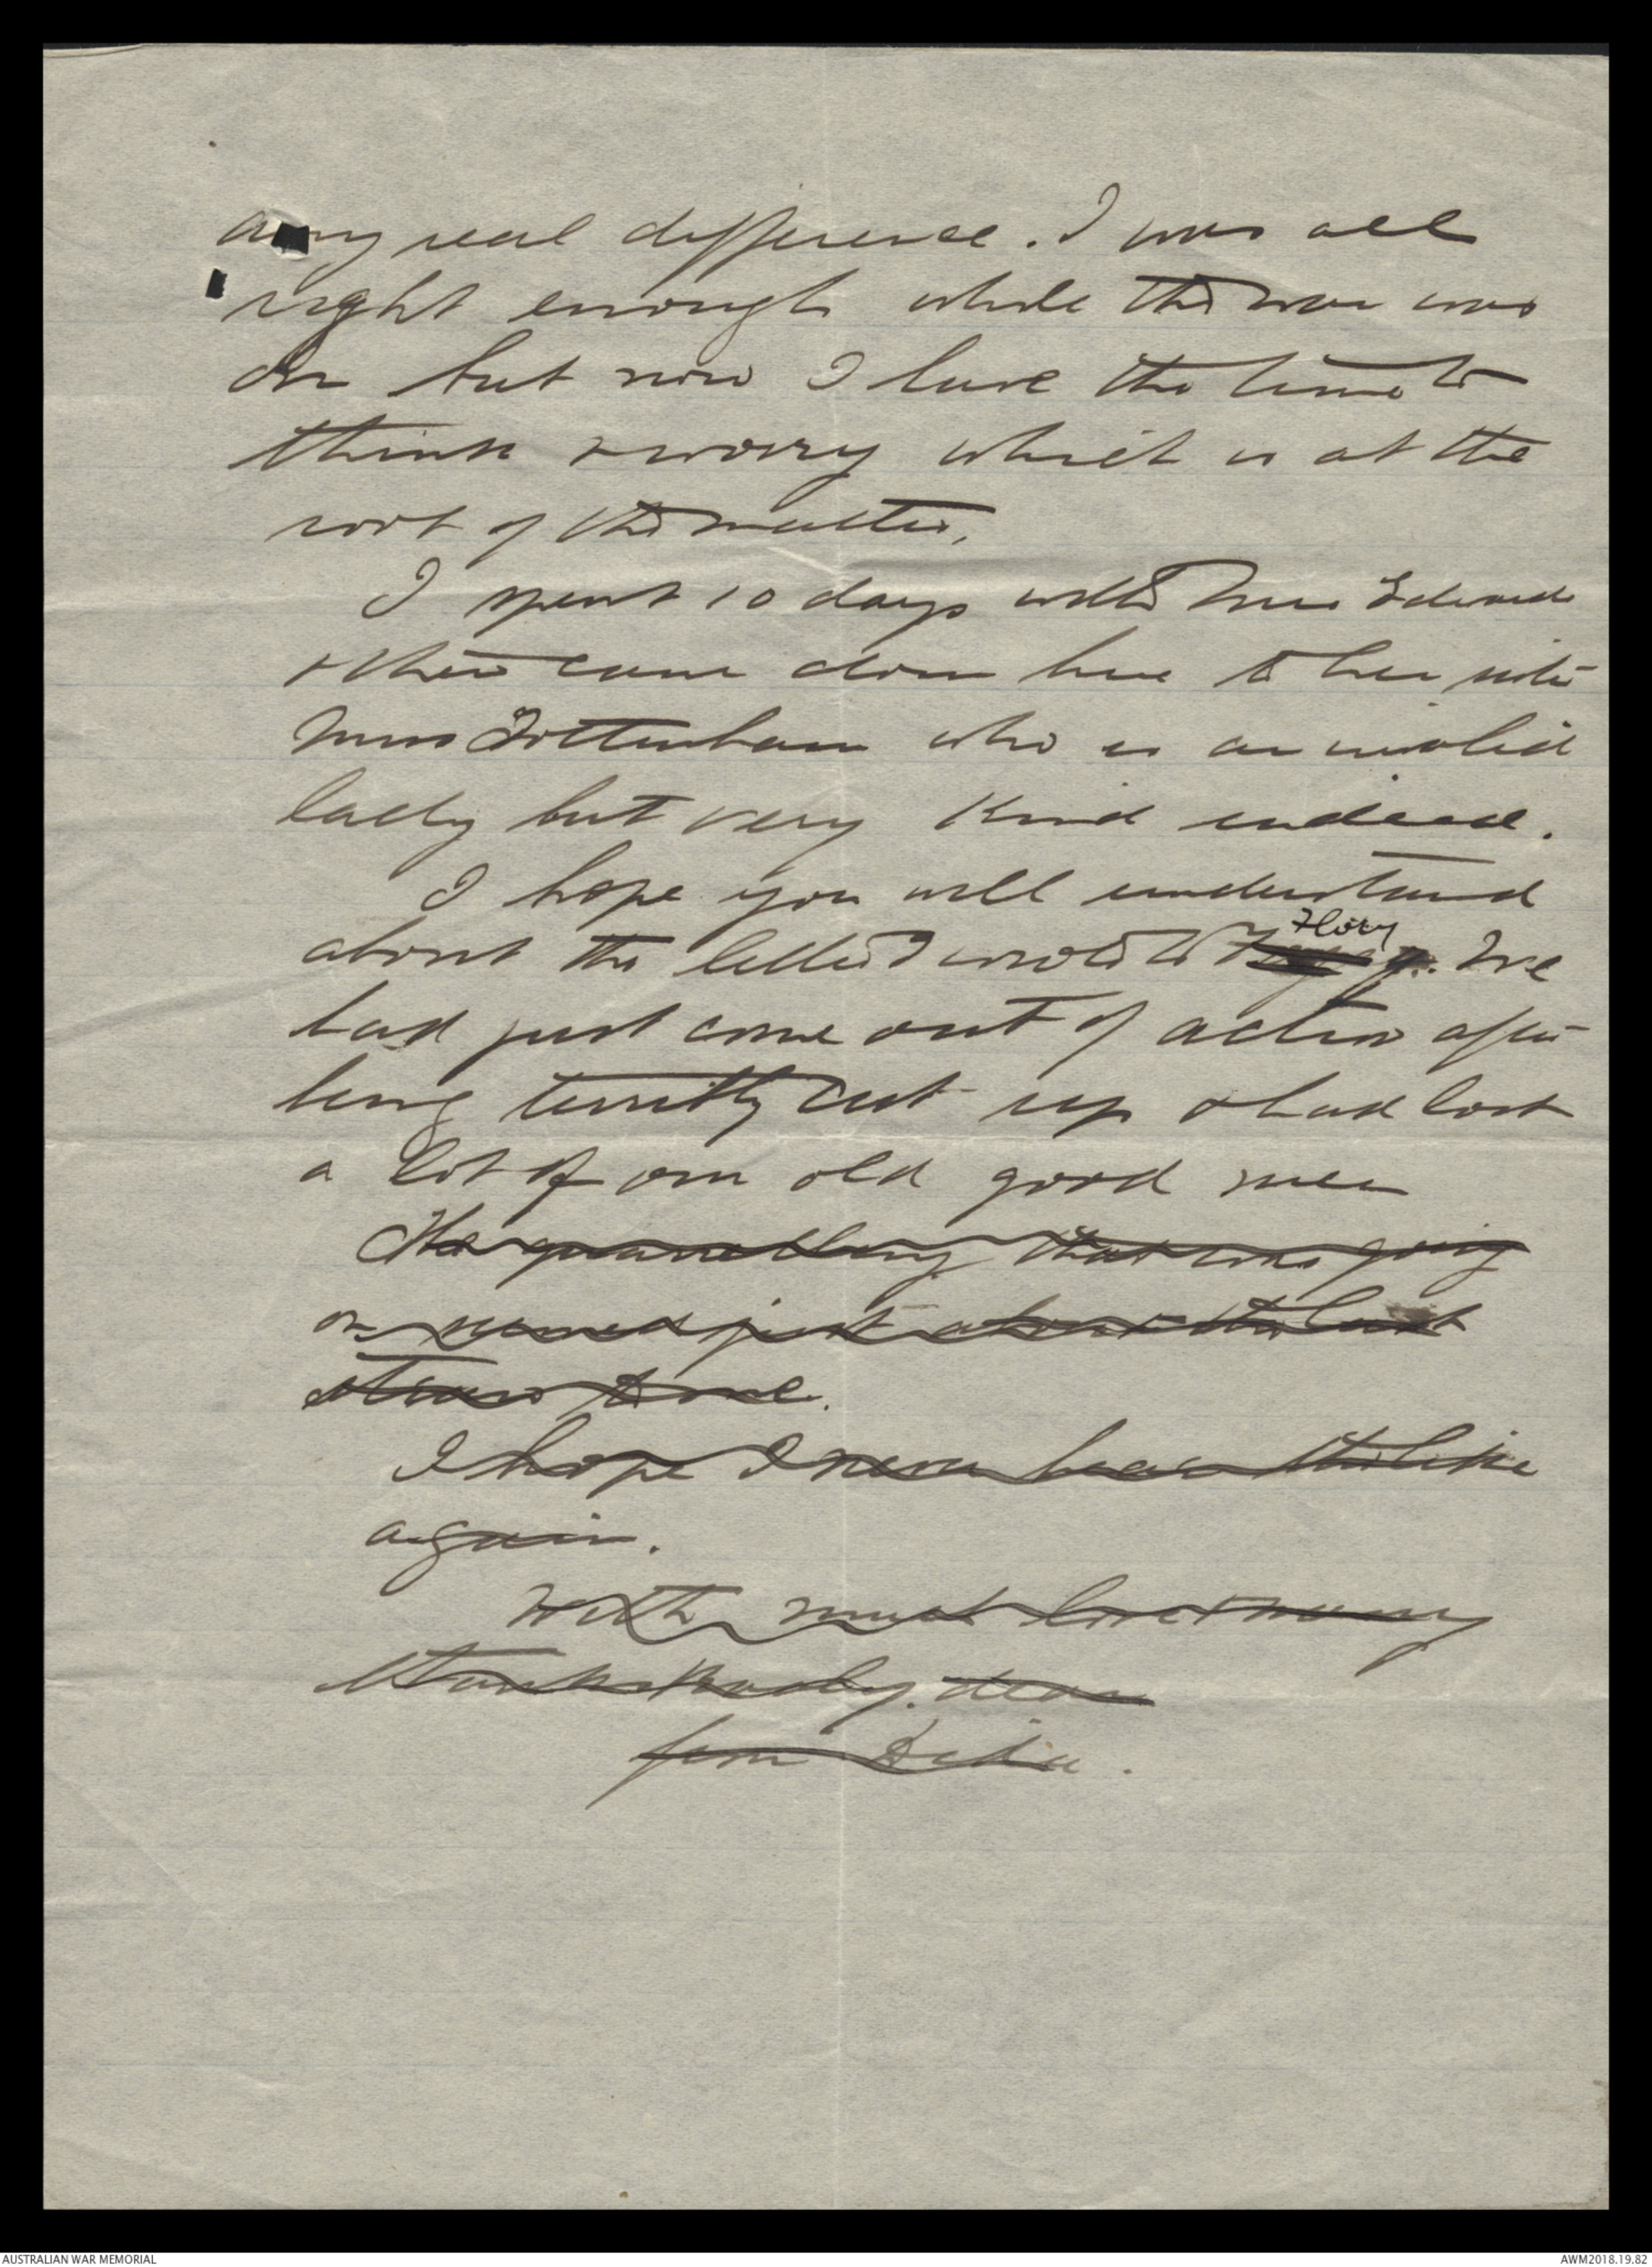 any real difference. I was all
right enough while the war was
on but now I have the time to
think & worry which is at the
root of the matter.
I spent 10 days with Miss Edwards
& then came down here to her sister
Miss Tottenham who is an invalid
lady but very kind indeed.
I hope you will understand
about the letter I wrote to Flory. We
had just come out of action after
being terribly cut up & had lost
a lot of our old good men
The quarrelling that was going
on seemed just about the last
straw to me.
I hope I never hear the like
again.
With much love & many
thanks dear
from
AUSTRALIAN WAR MEMORIAL
AWM2018.19.82